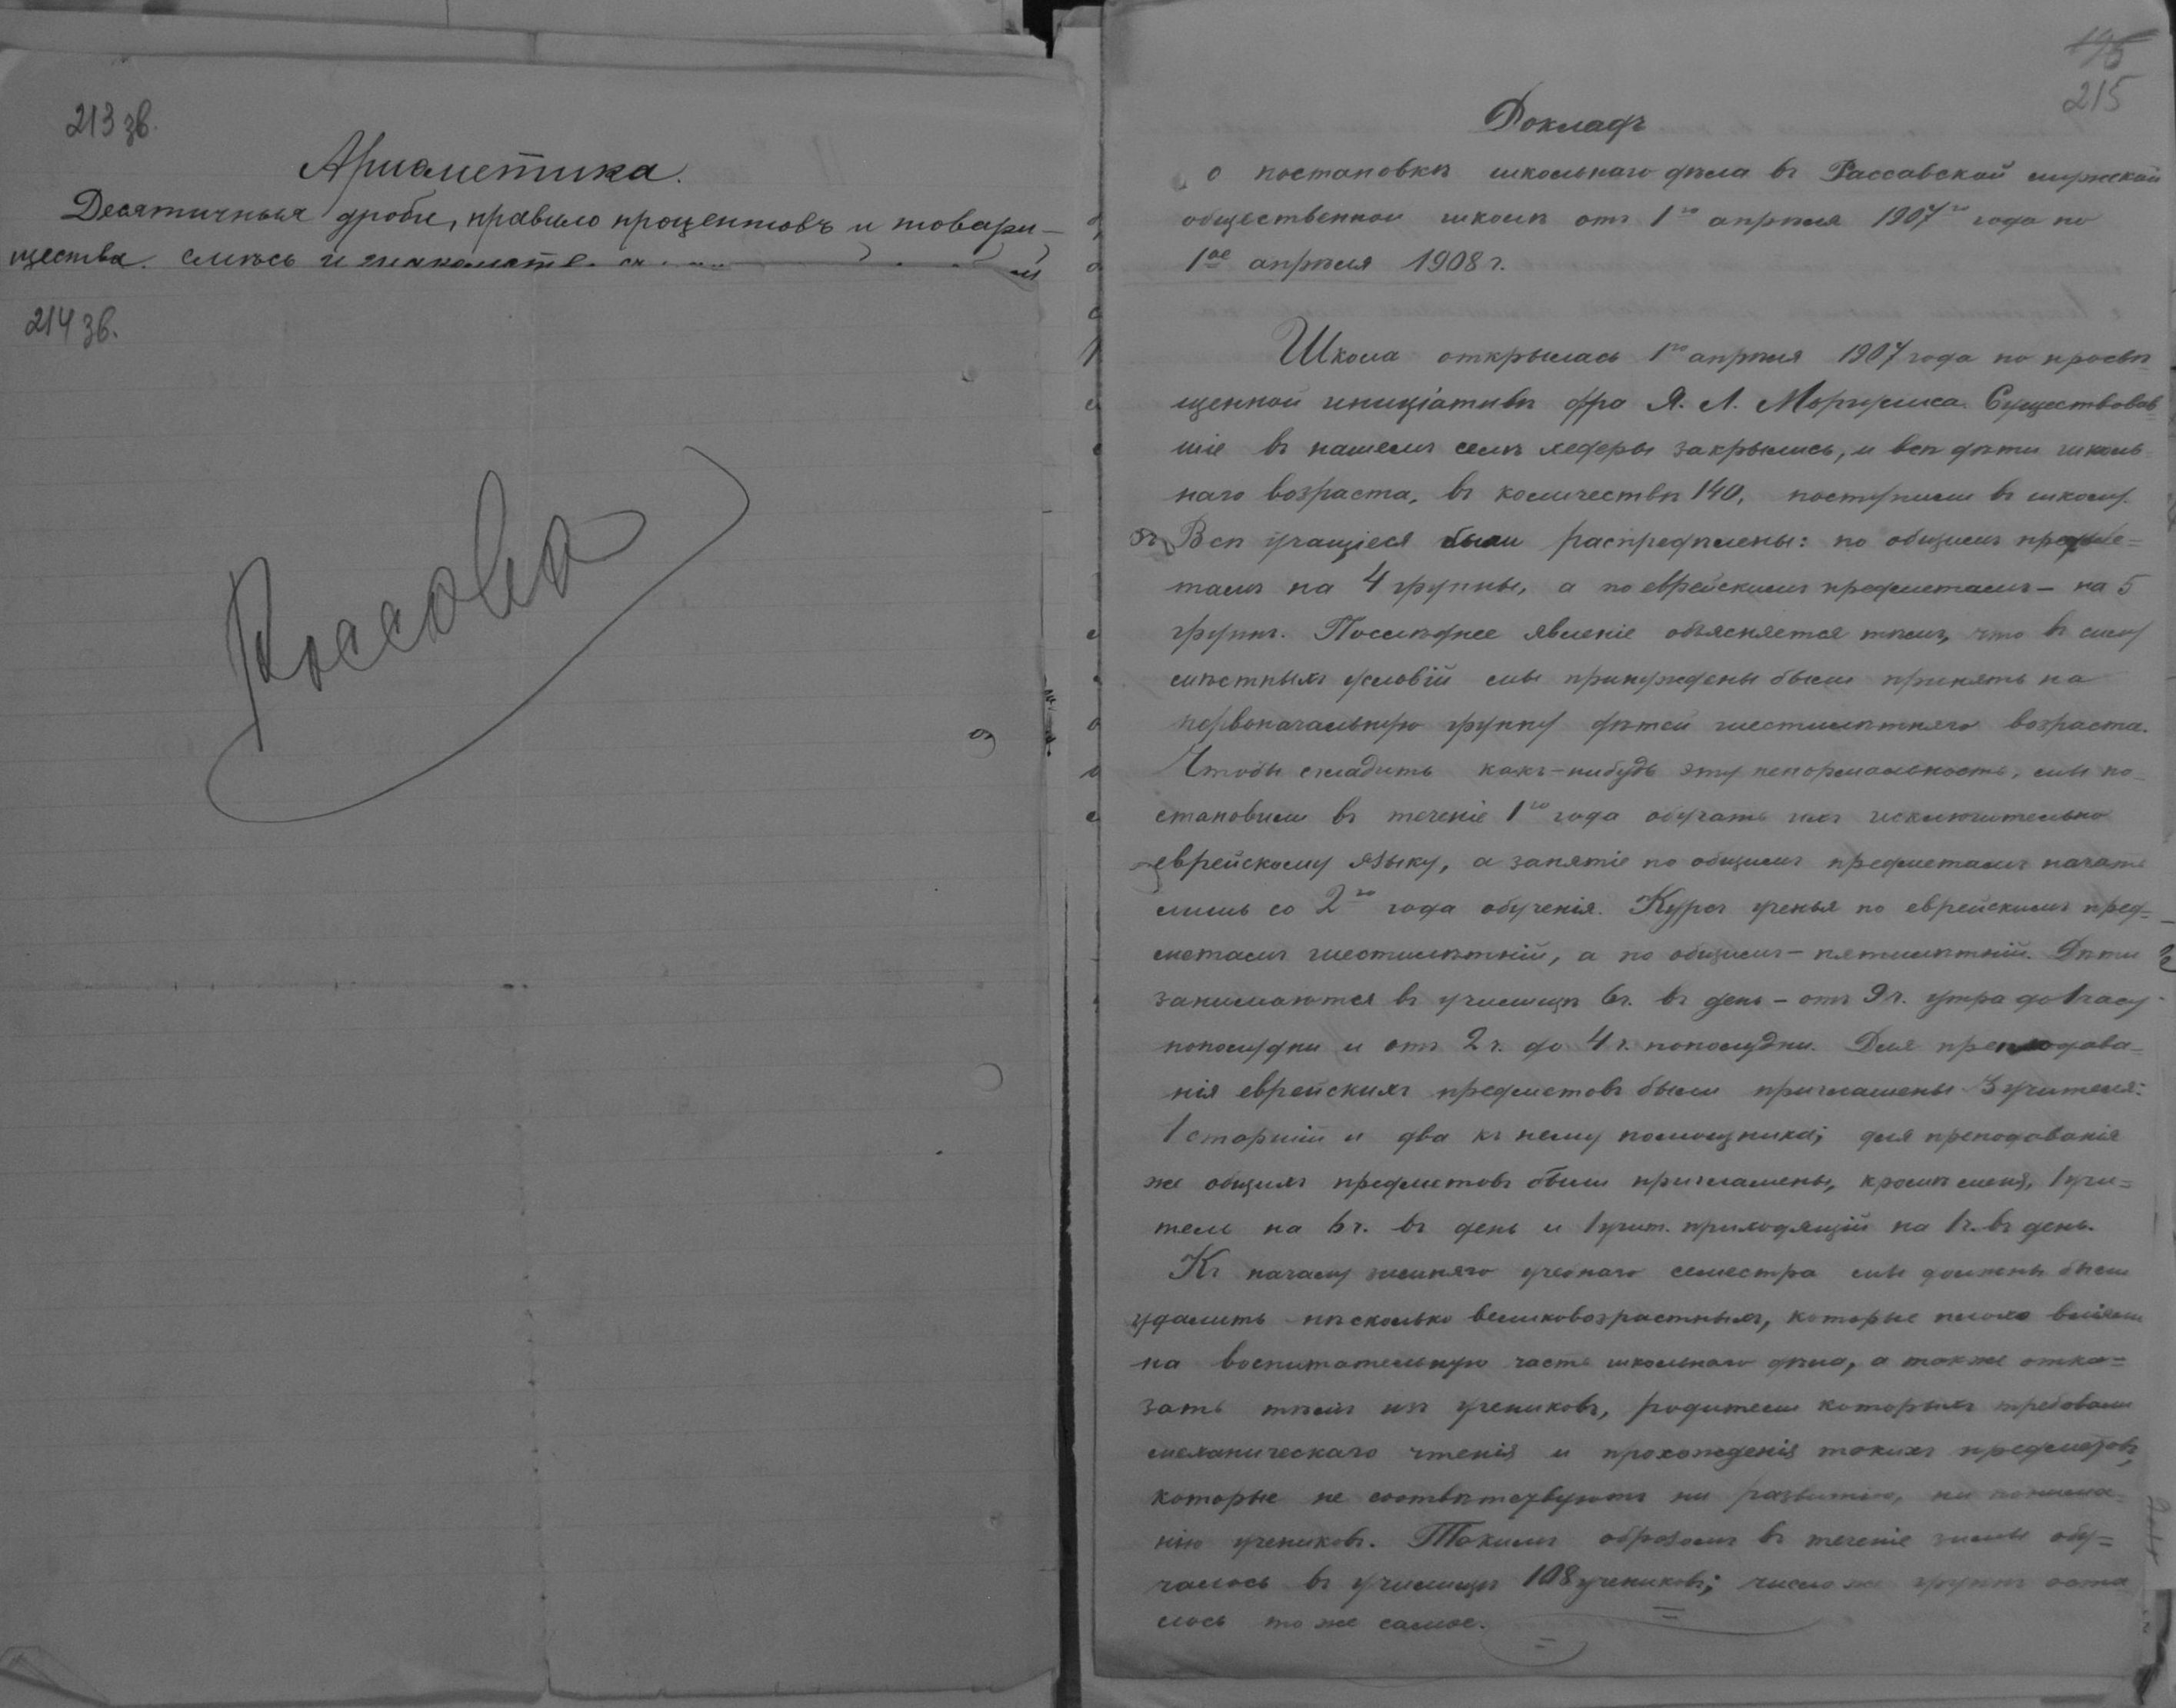 213 зв.
Ариѳметика.
Десятичныя дроби, правило процентовъ и товари-
щества. смѣсь и
214 зв.
Россова
195
215
Докладъ
о постановкѣ школьнаго дѣла въ Рассавской мужской
общественной школѣ отъ 1го апрѣля 1907го года по
1ое апрѣля 1908 г.
Школа открылась 1го апрѣля 1907 года по просвѣ-
щенной иниціативѣ д-ра Я. Л. Существовав-
шіе въ нашемъ селѣ хедеры закрылись, и всѣ дѣти школь-
наго возраста, въ количествѣ 140, поступили въ школу.
Всѣ учащіеся были распредѣлены: по общимъ предме=
тамъ на 4 группы, а по еврейскимъ предметамъ - на 5
группъ. Послѣднее явленіе объясняется тѣмъ, что въ силу
мѣстныхъ условій мы принуждены были принять на
первоначальную группу дѣтей шестилѣтняго возраста.
Чтобы сгладить какъ-нибудь эту ненормальность, мы по-
становили въ теченіе 1го года обучать ихъ исключительно
еврейскому языку, а занятіе по общимъ предметамъ начать
лишь со 2го года обученія. Курсъ ученья по еврейскимъ пред=
метамъ шестилѣтній, а по общимъ - пятилѣтній. Дѣти
занимаются въ училищѣ 6 ч. въ день - отъ 9 ч. утра до 1 часу
пополудни и отъ 2 ч. до 4 ч. пополудни. Для преподава=
нія еврейскихъ предметовъ были приглашены 3 учителя:
1 старшій и два къ нему помощника; для преподаванія
же общихъ предметовъ были приглашены, кромѣ меня, 1 учи=
тель на 6 ч. въ день и 1 учит. приходящій на 1 ч. въ день.
Къ началу зимняго учебнаго семестра мы должны были
удалить нѣсколько великовозрастныхъ, которые плохо вліяли
на воспитательную часть школьнаго дѣла, а также отка=
зать тѣмъ изъ учениковъ, родители которыхъ требовали
механическаго чтенія и прохожденія такихъ предметовъ,
которые не соотвѣтствуютъ ни развитію, ни понима-
нію учениковъ. Такимъ образомъ въ теченіе зимы обу=
чалось въ училищѣ 108 учениковъ; число же группъ оста
лось то же самое.